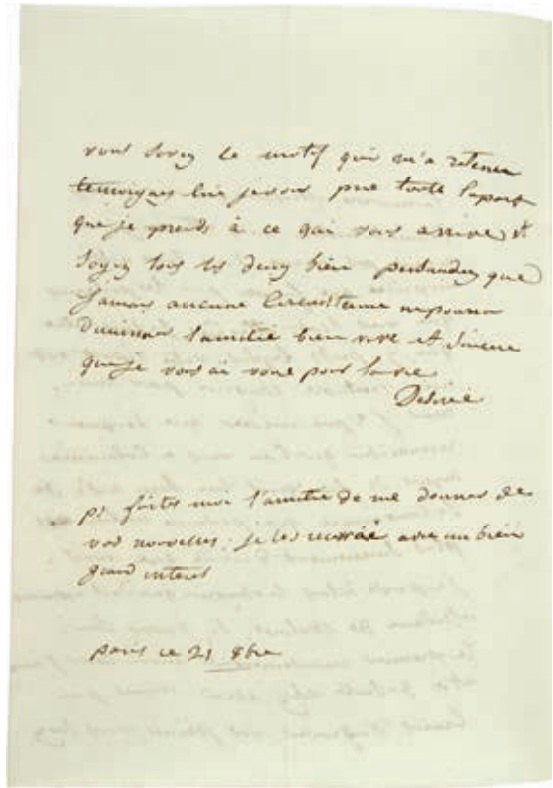 vous savez le motif qui m'a retenu
temoignez lui je vous prie toute la part
que je prends à ce qui vous arrive et
soyez tous les deux bien persuadez que
jamais aucune circonstance ne poura
diminuer l'amitie bien vive et sincere
que je vous ai voué pour la vie
Désirée
ps faites moi l'amitie de me donner de
vos nouvelles. je les avec un bien
grand interet
paris ce 21 8bre